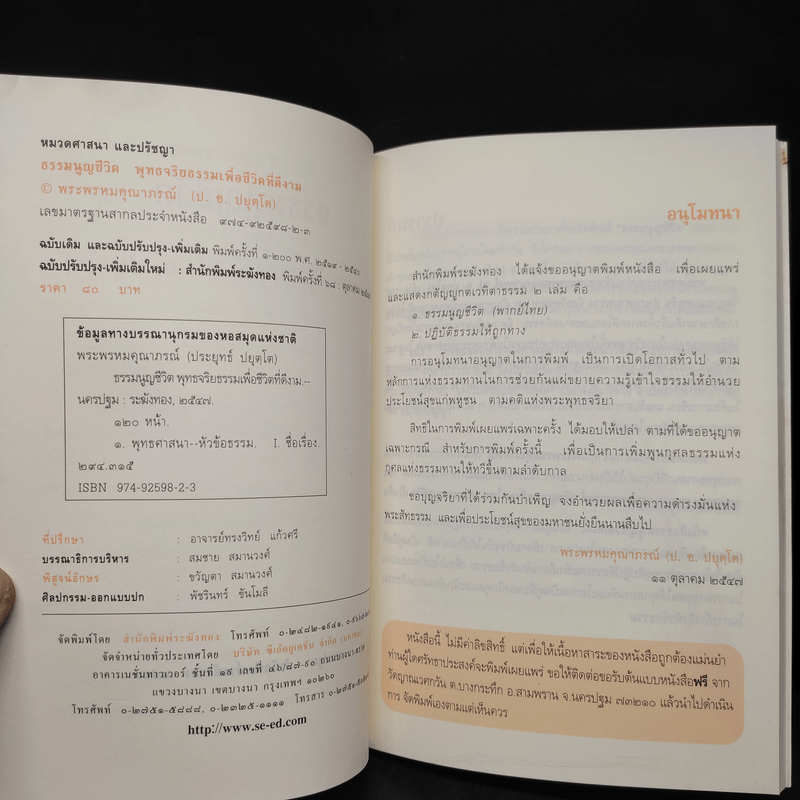 หมวดศาสนา และปรัชญา
ธรรมนูญชีวิต พุทธจริยธรรมเพื่อชีวิตที่ดีงาม
© พระพรหมคุณาภรณ์ (ป. อ. ปยุตฺโต)
เลขมาตรฐานสากลประจำหนังสือ ๙๗๔-๙๒๕๙๘-๒-๓
ฉบับเดิม และฉบับปรับปรุง-เพิ่มเติม พิมพ์ครั้งที่ ๑-๒๐๐ พ.ศ. ๒๕๑๙ -
ฉบับปรับปรุง-เพิ่มเติมใหม่ : สำนักพิมพ์ระฆังทอง พิมพ์ครั้งที่ ๖๘ : ตุลาคม
ราคา ๘๐ บาท
ข้อมูลทางบรรณานุกรมของหอสมุดแห่งชาติ
พระพรหมคุณาภรณ์ (ประยุทธ์ ปยุตฺโต)
ธรรมนูญชีวิต พุทธจริยธรรมเพื่อชีวิตที่ดีงาม.--
นครปฐม : ระฆังทอง, ๒๕๔๗.
๑๒๐ หน้า.
๑. พุทธศาสนา--หัวข้อธรรม. I. ชื่อเรื่อง.
๒๙๔.๓๑๕
ISBN 974-92598-2-3
ที่ปรึกษา : อาจารย์ทรงวิทย์ แก้วศรี
บรรณาธิการบริหาร : สมชาย สมานวงศ์
พิสูจน์อักษร : ขวัญตา สมานวงศ์
ศิลปกรรม-ออกแบบปก : พัชรินทร์ ขันโมลี
จัดพิมพ์โดย สำนักพิมพ์ระฆังทอง โทรศัพท์ ๐-๒๔๘๒-๑๙๔๑,
จัดจำหน่ายทั่วประเทศโดย บริษัท ซีเอ็ดยูเคชั่น จำกัด (มหาชน)
อาคารเนชั่นทาวเวอร์ ชั้นที่ ๑๙ เลขที่ ๔๖/๘๗-๙๐ ถนนบางนา-ตราด
แขวงบางนา เขตบางนา กรุงเทพฯ ๑๐๒๖๐
โทรศัพท์ ๐-๒๗๕๑-๕๘๘๘, ๐-๒๓๒๕-๑๑๑๑ โทรสาร
http://www.se-ed.com
อนุโมทนา
สำนักพิมพ์ระฆังทอง ได้แจ้งขออนุญาตพิมพ์หนังสือ เพื่อเผยแพร่
และแสดงกตัญญูกตเวทิตาธรรม ๒ เล่ม คือ
๑. ธรรมนูญชีวิต (พากย์ไทย)
๒. ปฏิบัติธรรมให้ถูกทาง
การอนุโมทนาอนุญาตในการพิมพ์ เป็นการเปิดโอกาสทั่วไป ตาม
หลักการแห่งธรรมทานในการช่วยกันแผ่ขยายความรู้เข้าใจธรรมให้อำนวย
ประโยชน์สุขแก่พหูชน ตามคติแห่งพระพุทธจริยา
สิทธิในการพิมพ์เผยแพร่เฉพาะครั้ง ได้มอบให้เปล่า ตามที่ได้ขออนุญาต
เฉพาะกรณี สำหรับการพิมพ์ครั้งนี้ เพื่อเป็นการเพิ่มพูนกุศลธรรมแห่ง
กุศลแห่งธรรมทานให้ทวีขึ้นตามลำดับกาล
ขอบุญจริยาที่ได้ร่วมกันบำเพ็ญ จงอำนวยผลเพื่อความดำรงมั่นแห่ง
พระสัทธรรม และเพื่อประโยชน์สุขของมหาชนยั่งยืนนานสืบไป
พระพรหมคุณาภรณ์ (ป. อ. ปยุตฺโต)
๑๑ ตุลาคม ๒๕๔๗
หนังสือนี้ ไม่มีค่าลิขสิทธิ์ แต่เพื่อให้เนื้อหาสาระของหนังสือถูกต้องแม่นยำ
ท่านผู้ใดศรัทธาประสงค์จะพิมพ์เผยแพร่ ขอให้ติดต่อขอรับต้นแบบหนังสือฟรี จาก
วัดญาณเวศกวัน ต.บางกระทึก อ.สามพราน จ.นครปฐม ๗๓๒๑๐ แล้วนำไปดำเนิน
การ จัดพิมพ์เองตามแต่เห็นควร